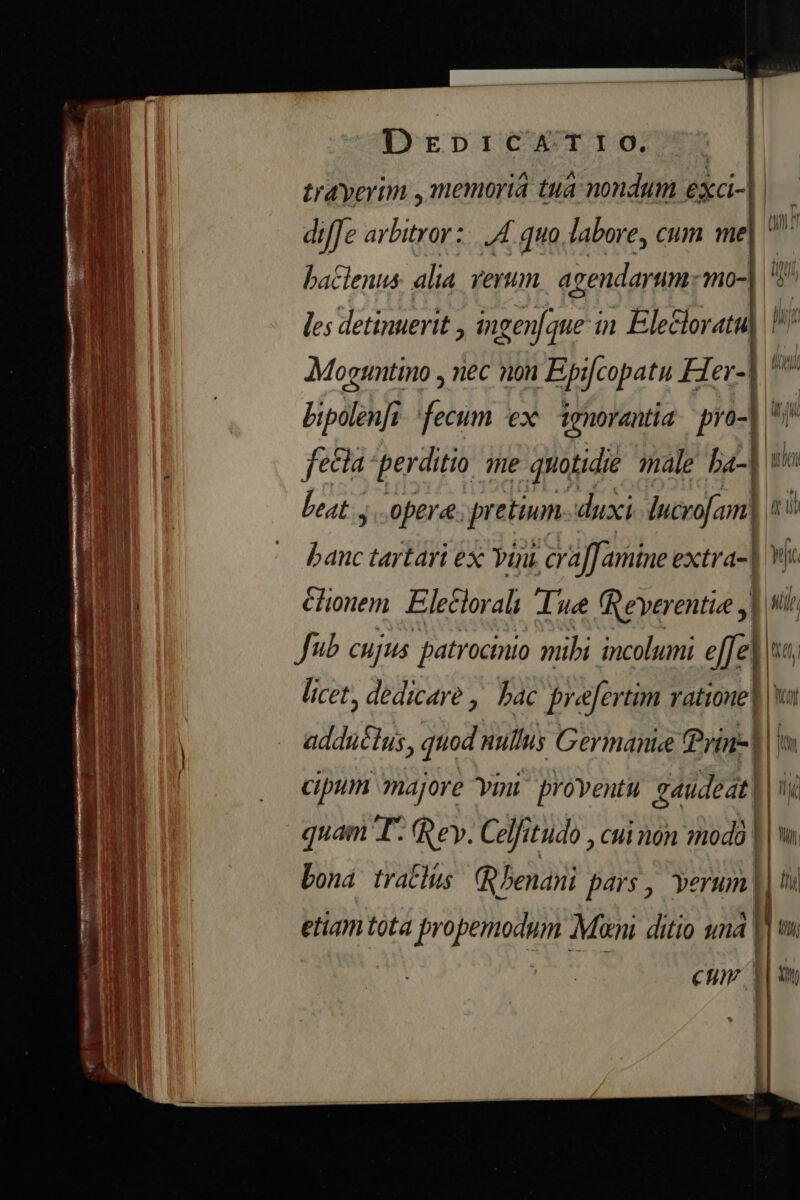 DEDICATIO.
traverim, memoriâ tuâ nondum exci-
diſſe arbitror: A quo labore, cum me
hactenus alia rerum agendarum mo-
les detinuerit, ingenſque in Electoratu
Moguntino, nec non Epiſcopatu Her-
bipolenſi fecum ex ignorantia pro-
fecta perditio me quotidie male ha-
beat, operæ pretium duxi lucroſam
hanc tartari ex vini craſſamine extra-
ctionem Electorali Tuæ Reverentiæ,
ſub cujus patrocinio mihi incolumi eſſe
licet, dedicare, hac præſertim ratione
adductus, quod nullus Germaniæ Prin-
cipum majore vini proventu gaudeat
quam T. Rev. Celſitudo, cui non modò
bona tractûs Rhenani pars, verum
etiam tota propemodum Mœni ditio unà
cum